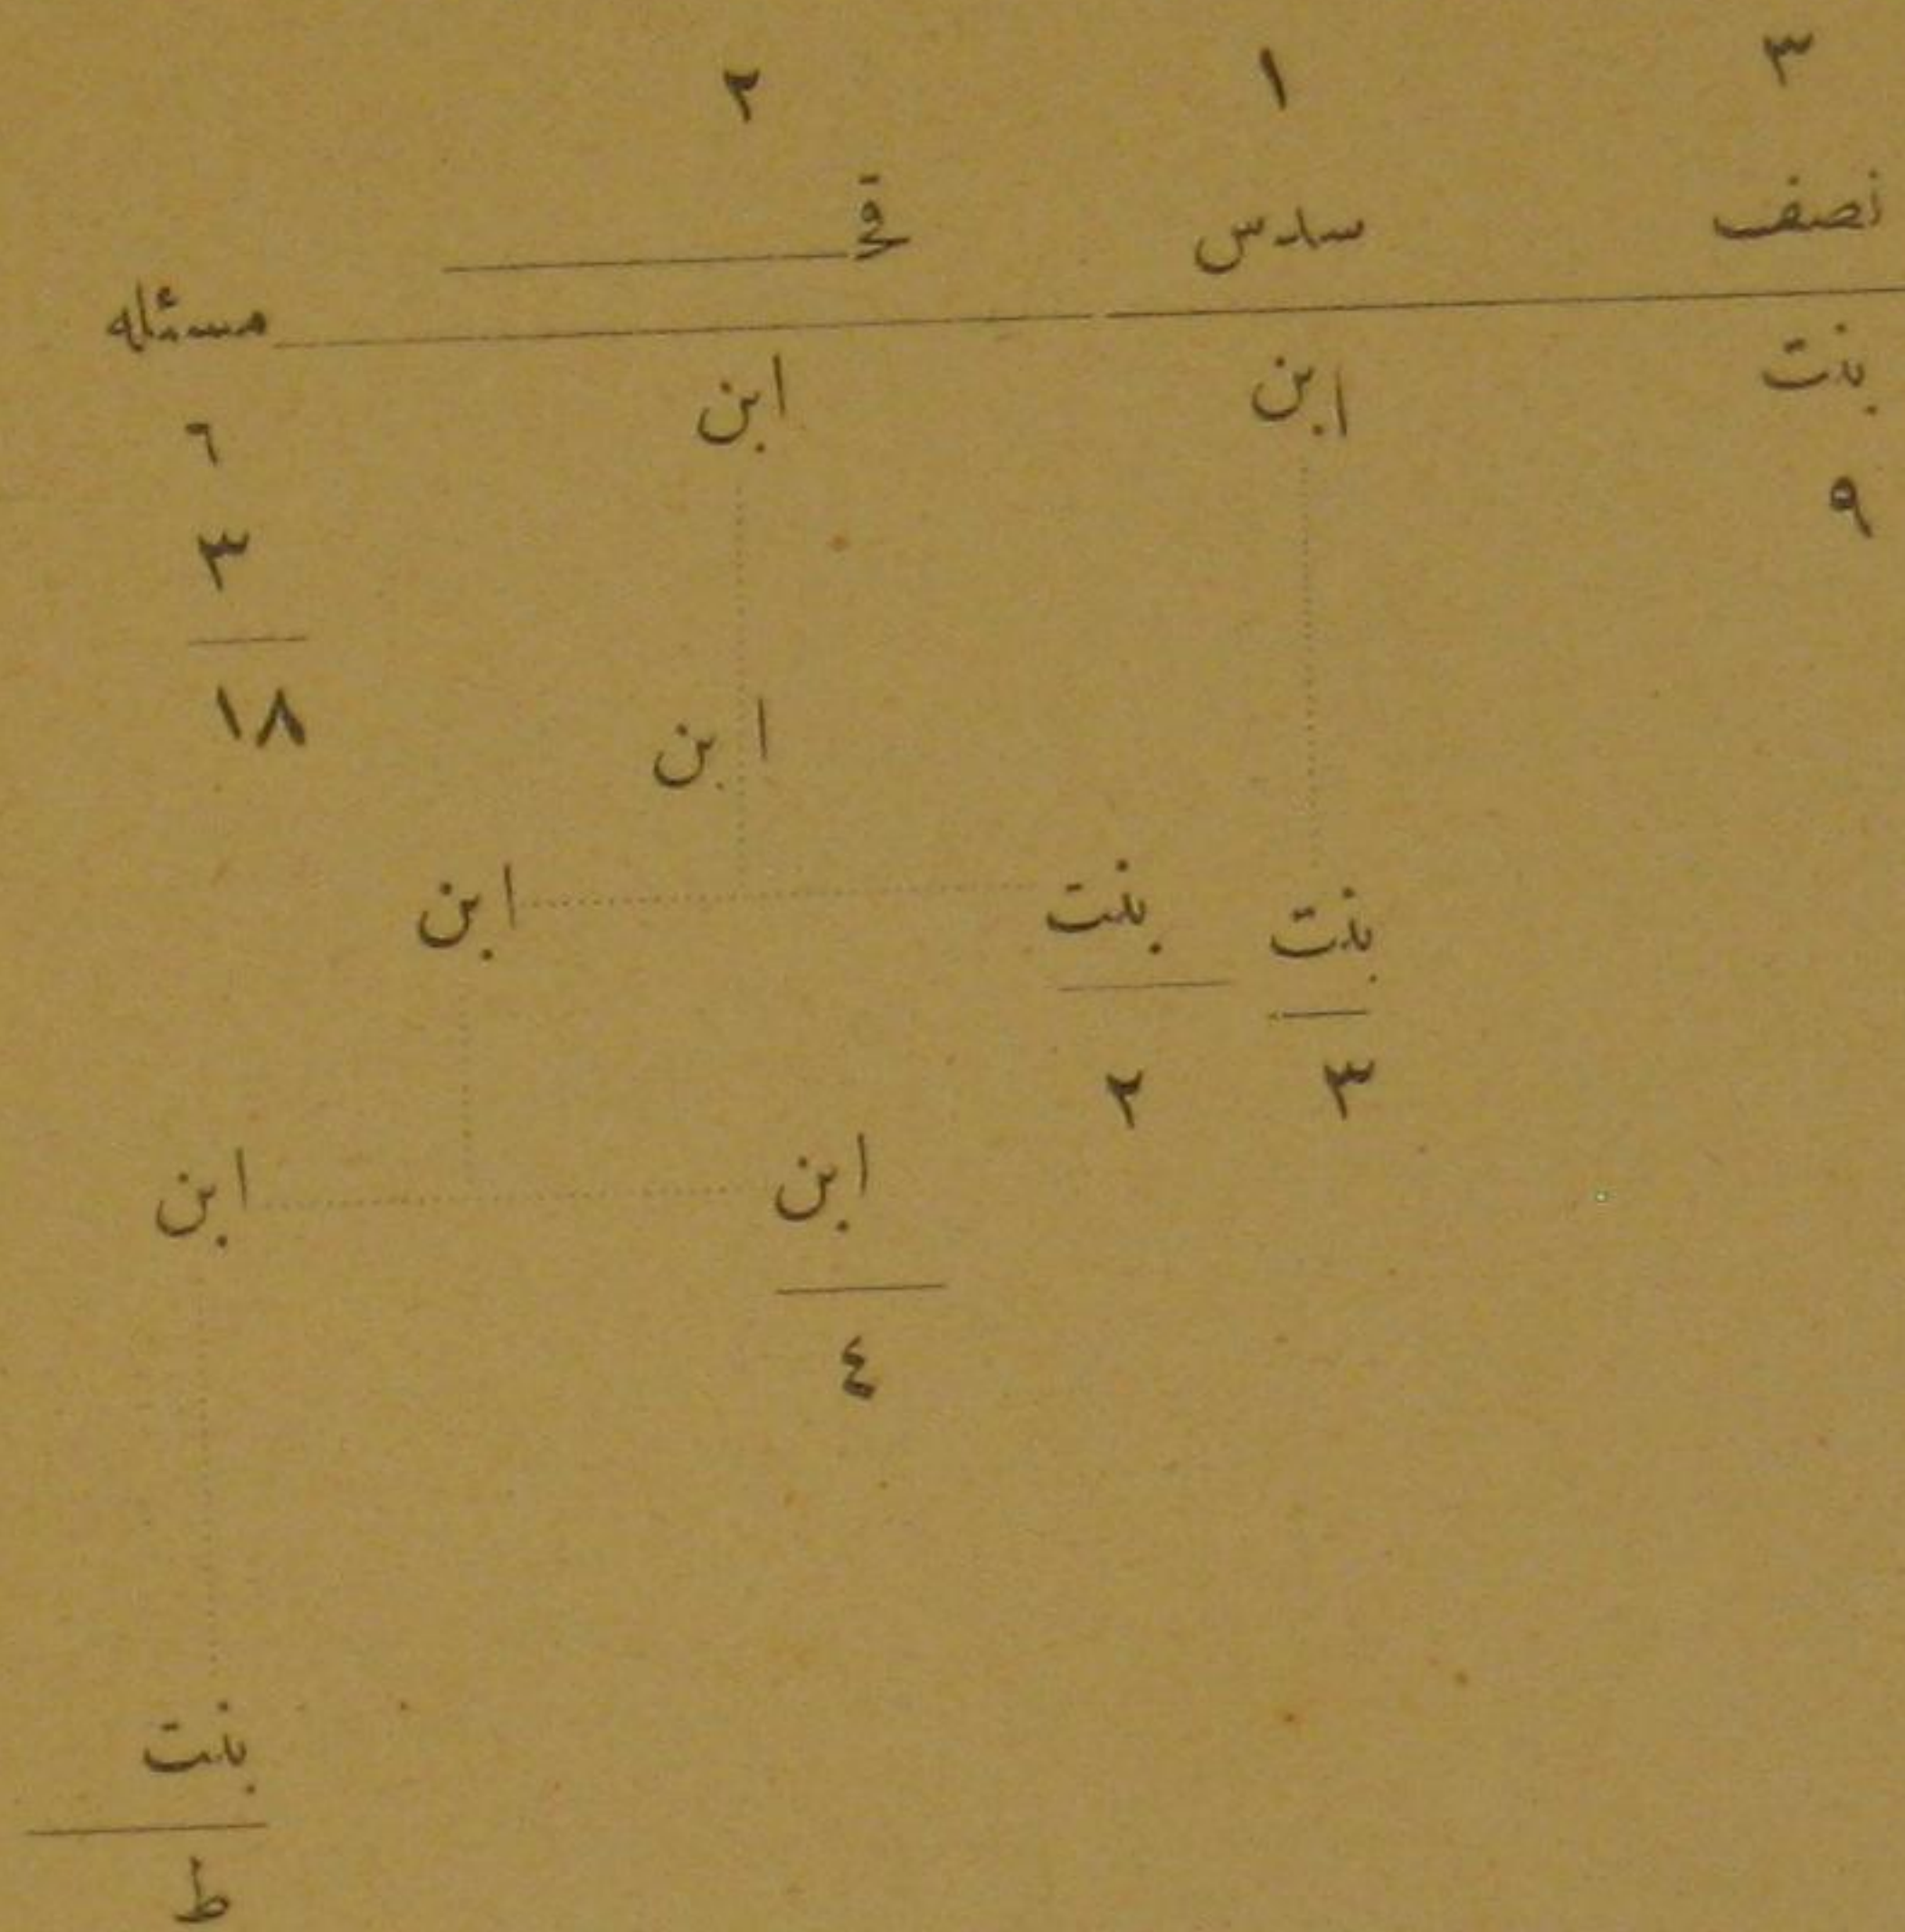 ٣ ١ ٢
نصف سدس قٓع
مسئله
بنت ابن ابن ٦
٩ ٣
١٨
ابن
بنت بنت ابن
٣ ٢
ابن ابن
٤
بنت
ط